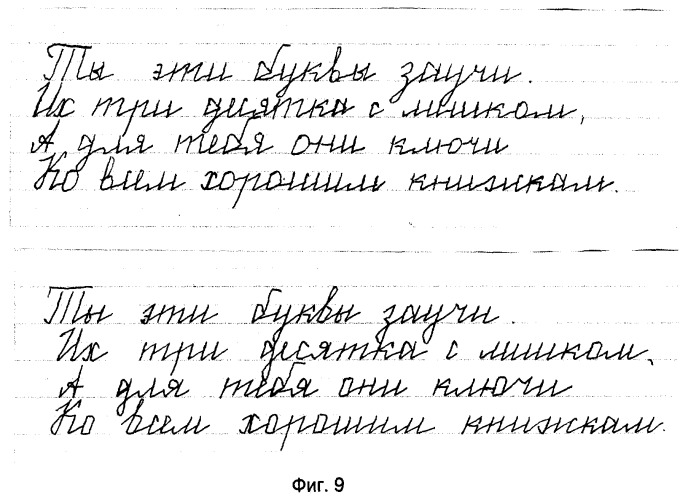 Ты эти буквы заучи.
Их три десятка с лишком,
А для тебя они ключи
Ко всем хорошим книжкам.
Ты эти буквы заучи.
Их три десятка с лишком,
А для тебя они ключи
Ко всем хорошим книжкам.
Фиг. 9